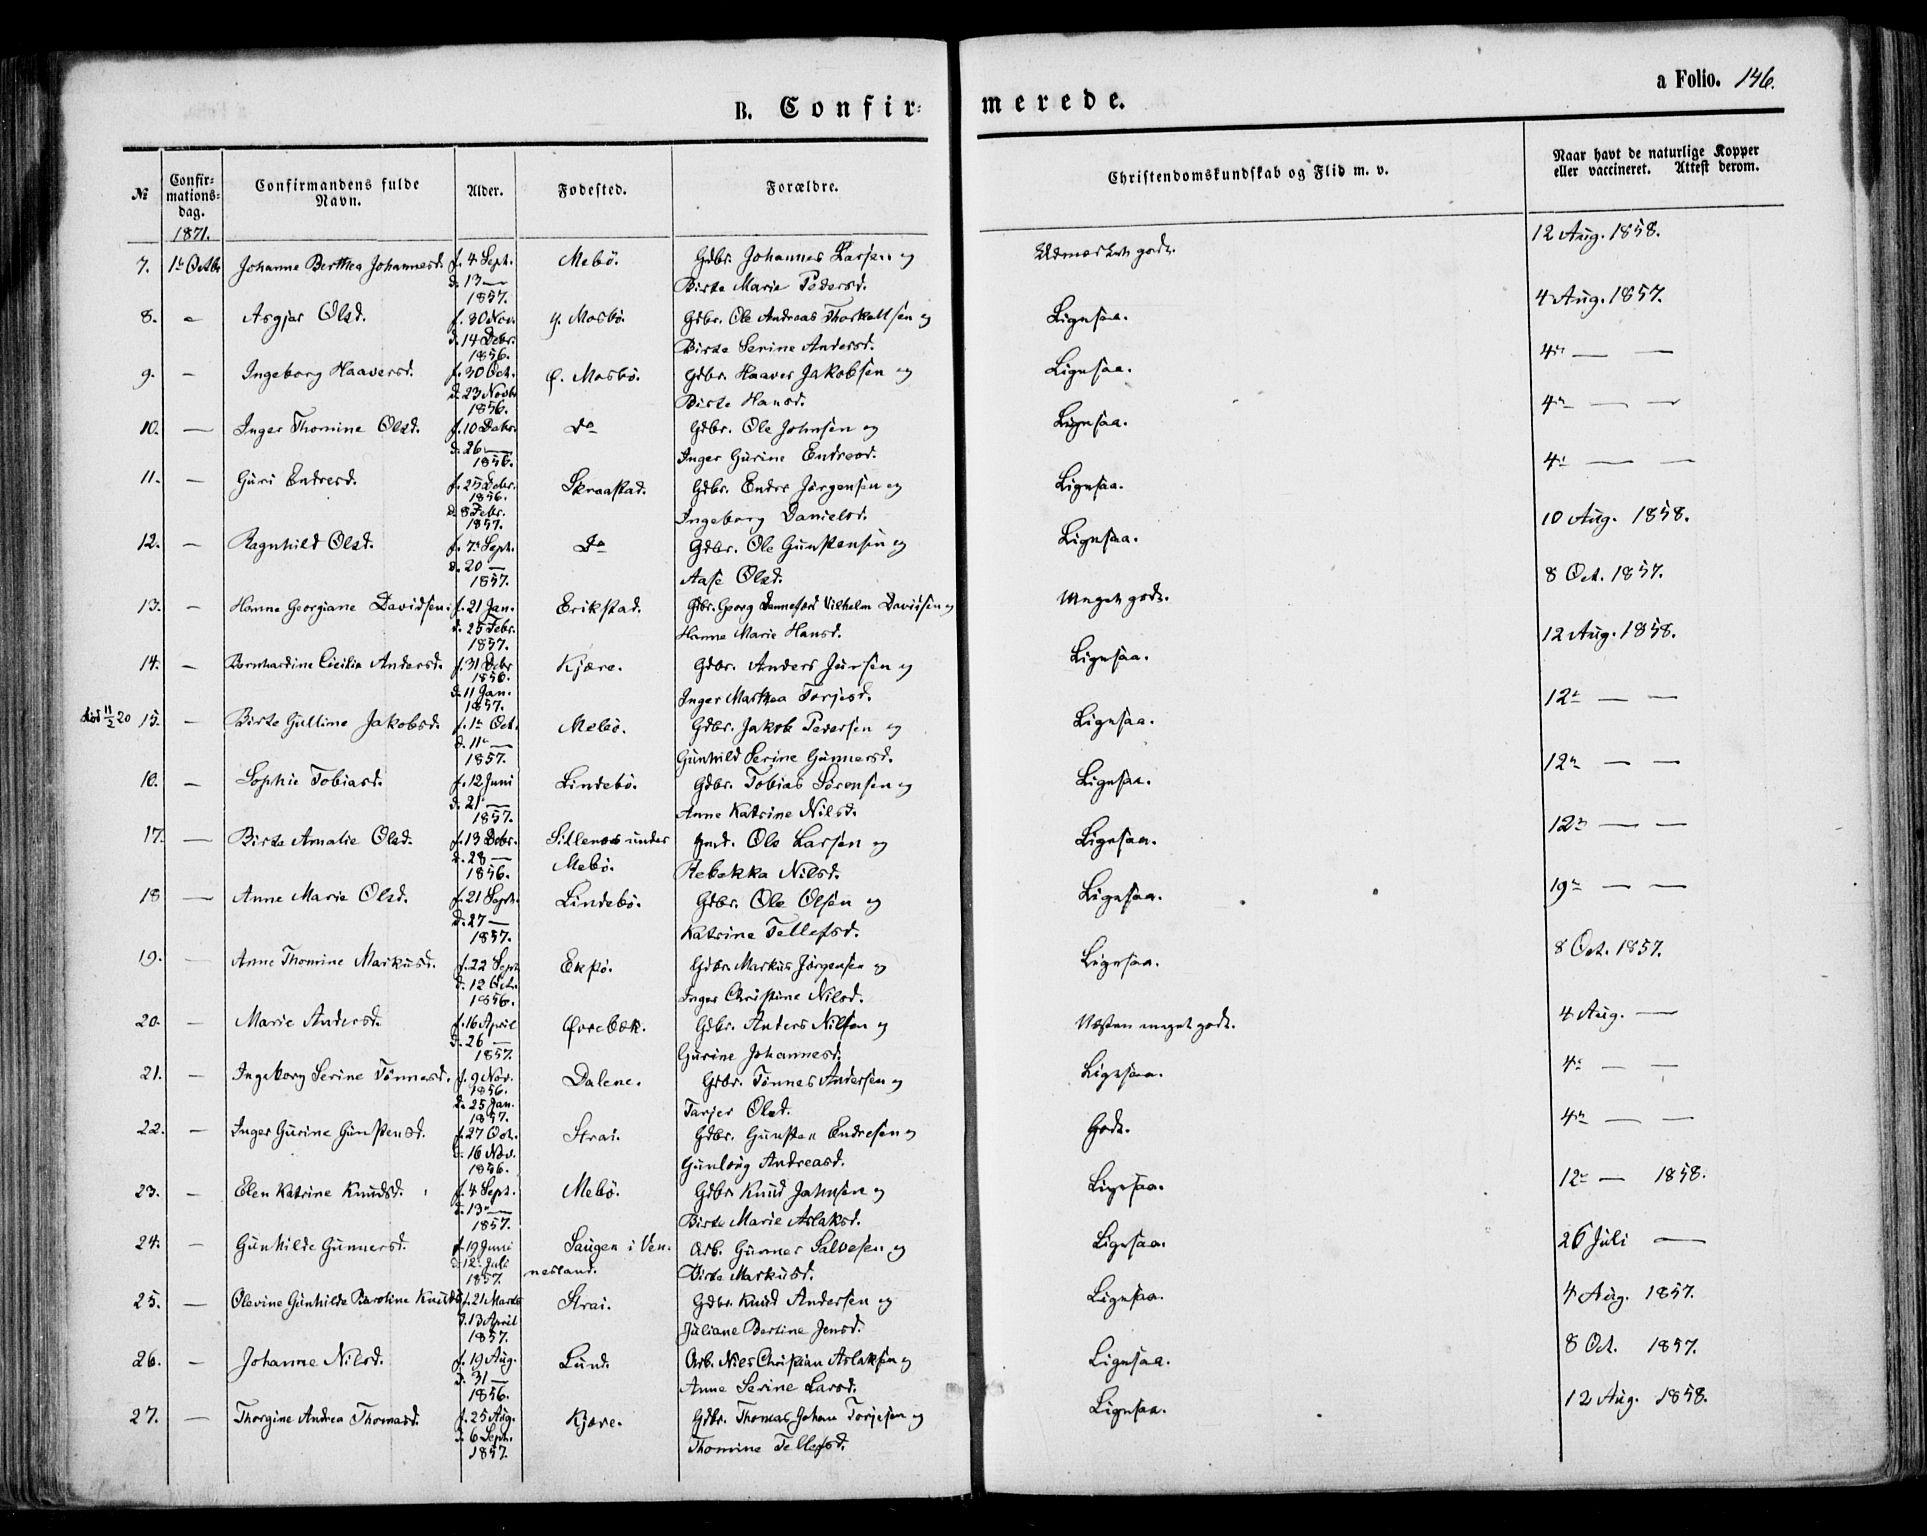 a Folio. 146.
B. Confir=merede.
№ Confir=mations=dag. Confirmandens fulde Navn. Alder. Fødested. Forældre. Christendomskundskab og Flid m. v. Naar havt de naturlige Kopper eller vaccineret. Attest derom.
1871.
7. 1ste Octbr Johanne Berthea Johannesd. f. 4 Sept. Mebø. Gdbr. Johannes Larsen og Udmærket godt. 12 Aug. 1858.
d. 13 — 1857. Birte Marie Pedersd.
8. — Asgjær Olsd. f. 30 Nov. y. Mosbø. Gdbr. Ole Andreas Thorkelsen og Ligesaa. 4 Aug. 1857.
d. 14 Debr. 1856. Birte Serine Andersd.
9. — Ingeborg Haaversd. f. 30 Oct. ø. Mosbø. Gdbr. Haaver Jakobsen og Ligesaa. 4de — —
d. 23 Novbr 1856. Birte Hansd.
10. — Inger Thomine Olsd. f. 10 Debr. Do Gdbr. Ole Johnsen og Ligesaa. 4de — —
d. 26 — 1856. Inger Gurine Endresd.
11. — Guri Endresd. f. 25 Debr. 1856. Skraastad. Gdbr. Endre Jørgensen og Ligesaa. 4de — —
d. 8 Febr. 1857. Ingeborg Danielsd.
12. — Ragnhild Olsd. f. 7de Sept. Do Gdbr. Ole Gunstensen og Ligesaa. 10 Aug. 1858.
d. 20 — 1857. Aase Olsd.
13. — Hanne Georgiane Davidsen. f. 21 Jan. Erikstad. Gdbr. Georg Dannefærd Vilhelm Davidsen og Meget godt. 8 Oct. 1857.
d. 25 Febr. 1857. Hanne Marie Hansd.
14. — Bernhardine Cicilia Andersd. f. 31 Debr 1856. Kjære. Gdbr. Anders Jensen og Ligesaa. 12 Aug. 1858.
d. 11 Jan. 1857. Inger Marthea Torjesd.
død 11/2 20 15. — Birte Gulline Jakobsd. f. 1ste Oct. Mebø. Gdbr. Jakob Pedersen og Ligesaa. 12te — —
d. 11te — 1857. Gunhild Serine Gunnersd.
16. — Sophie Tobiasd. f. 12 Juni Lindebø. Gdbr. Tobias Sørensen og Ligesaa. 12te — —
d. 21 — 1857. Anne Katrine Nilsd.
17. — Birte Amalie Olsd. f. 13 Debr. Sillenes under Gmd. Ole Larsen og Ligesaa. 12te — —
d. 28 — 1856. Mebø. Rebekka Nilsd.
18 — Anne Marie Olsd. f. 21 Sept. Lindebø. Gdbr. Ole Olsen og Ligesaa. 19de — —
d. 27 — 1857. Katrine Tellefsd.
19. — Anne Thomine Markusd. f. 22 Sept. Ekkø. Gdbr. Markus Jørgensen og Ligesaa. 8 Oct. 1857.
d. 12 Oct. 1856. Inger Christine Nilsd.
20. — Marie Andersd. f. 16 April Øvrebæk. Gdbr. Anders Nilsen og Næsten meget godt. 4 Aug. —
d. 26 — 1857. Gurine Johannesd.
21. — Ingeborg Serine Tønnesd. f. 9 Nov. 1856. Dalene. Gdbr. Tønnes Andersen og Ligesaa. 4de — —
d. 25 Jan. 1857. Tarjer Olsd.
22. — Inger Gurine Gunstensd. f. 27 Oct. Strai. Gdbr. Gunsten Endresen og Godt. 4de — —
d. 16 Nov. 1856. Gunloug Andreasd.
23. — Elen Katrine Knudsd. f. 4 Sept. Mebø. Gdbr Knud Jahnsen og Ligesaa. 12te — 1858.
d. 13de — 1857. Birte Marie Aslaksd.
24. — Gunhilde Gunnersd. f. 19 Juni Saugen i Ven- Arb. Gunner Salvesen og Ligesaa. 26 Juli —
d. 12. Juli 1857. nesland. Birte Markusd.
25. — Olevine Gunhilde Karoline Knudsd. f. 21 Marts Strai. Gdbr. Knud Andersen og Ligesaa. 4 Aug. 1857.
d. 13 April 1857. Juliane Bertine Jensd.
26. — Johanne Nilsd. f. 19 Aug. Lund. Arb. Niels Christian Aslaksen og Ligesaa. 8 Oct. 1857.
d. 31 — 1856. Anne Serine Larsd.
27. — Thorgine Andrea Thomasd. f. 25 Aug. Kjære. Gdbr. Thomas Johan Torjesen og Ligesaa. 12 Aug. 1858.
d. 6 Sept. 1857. Thomine Tellefsd.